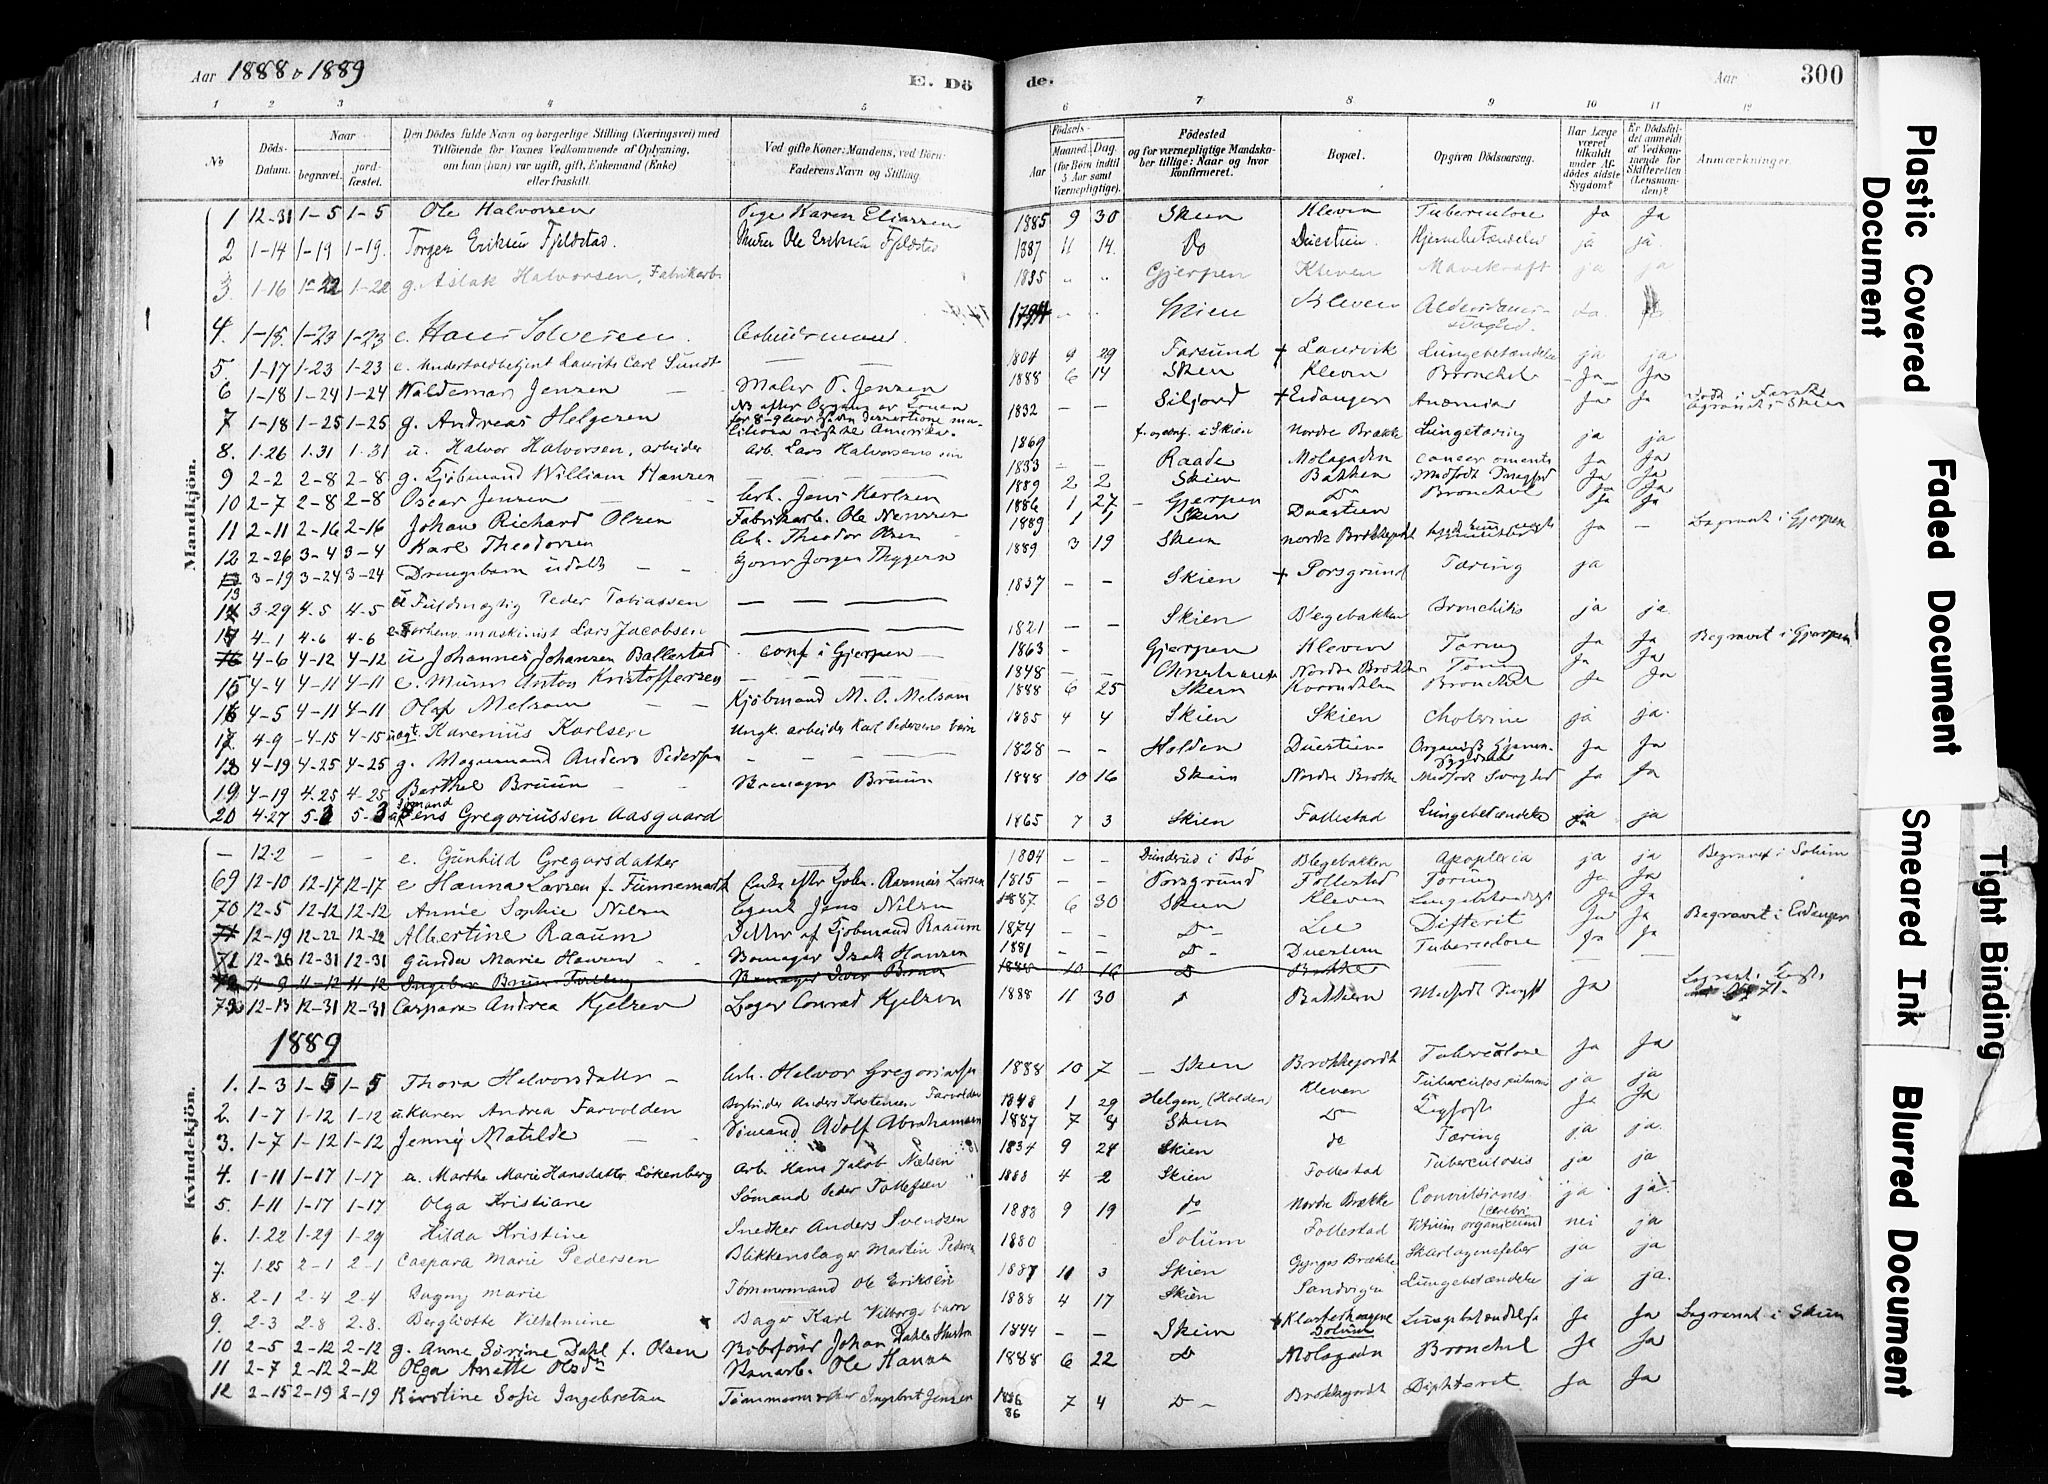 Aar 1888 & 1889
E. Dö
de.
Aar
300
1 2 3 4 5 6 7 8 9 10 11 12
No
Döds-Datum.
Naar
begravet.
jord-fæstet.
Den Dödes fulde Navn og borgerlige Stilling (Næringsvei) med
Tilföiende for Voxnes Vedkommende af Oplysning,
om han (hun) var ugift, gift, Enkemand (Enke)
eller fraskilt.
Ved gifte Koner: Mandens, ved Börn:
Faderens Navn og Stilling.
Födsels-
Aar
Maaned Dag.
(for Børn indtil
5 Aar samt
Værnepligtige).
Födested
og for værnepligtige Mandska-
ber tillige: Naar og hvor
konfirmeret.
Bopæl.
Opgiven Dödsaarsag.
Har Læge
været
tilkaldt
under Af-
dödes sidste
Sygdom?
Er Dödsfal-
det anmeldt
af Vedkom-
mende for
Skifteretten
(Lensman-
den)?
Anmærkninger.
Mandkjön.
1 12-31 1-5 1-5 Ole Halvorsen Pige Karen Eliassen 1885 9 30 Skien Kleven Tuberculose Ja Ja
2 1-14 1-19 1-19. Torger Eriksen Fjeldstad. Murer Ole Eriksen Fjeldstad 1887 11 14. Do Duestien. Hjernebetændelse ja ja.
3. 1-16 1-22 1-22 g. Aslak Halvorsen, Fabrikarb. 1835 " " Gjerpen Kleven Mavekræft ja ja
4. 1-15. 1-23 1-23 e. Hans Solvesen. Arbeidsmand. 1794 - - Skien Kleven Alderdoms-svaghed. Ja
5. 1-17 1-23 1-23 e. Underfoldbetjent Laurits Carl Sundt — 1804 9 29 Farsund + Laurvik Lungebetændelse ja ja
6 1-18 1-24 1-24 Waldemar Jensen — Maler P. Jensen 1888 6 14 Skien Kleven Bronchit Ja Ja
7 1-18 1-25 1-25 g. Andreas Helgesen. 1832 — — Siljord + Eidanger Anæmia Ja Ja
8. 1-26 1-31 1-31 u. Halvor Halvorsen, arbeider Arb. Lars Halvorsens søn 1869 f. og conf. i Skien Nordre Brække Lungetæring ja ja
9 2-2 2-8 2-8 g. Kjøbmand William Hansen — 1833 — — Raade Mølagaden cancer omenti Ja Ja
10 2-7 2-8 2-8 Oscar Jensen — Arb. Jens Karlsen 1889 2 2 Skien Bakken Medfødt Svaghed Ja Ja
11 2-11 2-16 2-16 Johan Richard Olsen Fabrikarb. Ole Nenseen 1886 1 27 — Gjerpen Do Bronchit Ja Ja
12 2-26 3-4 3-4 Karl Theodorsen Arb. Theodor Olsen 1889 1 1 Skien Duestien Ja — Begravet i Gjerpen
13 3-19 3-24 3-24 Drengebarn udøbt — — Jørgen Thygesen 1889 3 19 Skien Nordre Brække
14 3-29 4-5 4-5 u Fuldmægtig Peder Tobiassen — — — 1837 — — Skien + Porsgrund Tæring ja
4-1 4-6 4-6 e. Forhenv. maskinist Lars Jacobsen — 1821 — — Skien Blegebakken Bronchitis ja ja
16 4-6 4-12 4-12 u Johannes Johansen Ballestad conf i Gjerpen — 1863 - Gjerpen Kleven Tæring Ja Ja Begravet i Gjerpen
15 4-4 4-11 4-11 e. Murer Anton Kristoffersen — 1848 — — Nordre Brække Tæring Ja Ja
16 4-5 4-11 4-11 Olaf Melsom — — Kjøbmand M. O. Melsom 1888 6 25 Skien Bronchit Ja Ja
17. 4-9 4-15 4-15 Karenius Karlsen Ungk. arbeider Karl Pedersens barn 1885 4 4 Skien Skien Cholerine ja ja.
18 4-19 4-25 4-25 g. Anders Pedersen — 1828 — — Holden Duestien Organisk Hjerte-sygdom Ja Ja
19 4-19 4-25 4-25 Berthel Bruun — — Skomager Bruun 1888 10 16 Skien Nordre Brække Medfødt Svaghed Ja Ja
20 4-27 5-3 5-3 Sømand Jens Gregoriussen Aasgaard 1865 7 3 Skien Follestad Lungebetændelse ja ja
Kvindekjön.
— 12-2 — — e. Gunhild Gregarsdatter 1804 — — Dunderud i Bø Blegebakken Apoplexia ja ja Begravet i Solum
69 12-10 12-17 12-17 e Hanna Larsen f. Funnemark Enke efter Rasmus Larsen 1815 — — Porsgrund Follestad Tæring Ja Ja
70 12-5 12-12 12-12 Annie Sophie Nilsen Agent Jens Nilsen 1887 6 30 Skien Kleven Lungebetændelse Ja Ja
71 12-19 12-22 12-22 Albertine Raaum Datter af Kjøbmand Raaum 1874 — — Do Lie Difterit Ja Ja Begravet i Eidanger
71 12-26 12-31 12-31 Gunda Marie Hansen Skomager Isak Hansen 1881 — — Do Duestien Tuberculose Ja —
72 11-9 11-12 11-12 Ingebor Bruun Skomager Iver Bruun 1888 10 16 Do Brække
72 12-13 12-31 12-31 Caspara Andrea Kjelsen Bager Conrad Kjelsen 1888 11 30 Do Bakken Medfødt Svagh Ja
1889
1. 1-3 1-5 1-5 Thora Halvorsdatter — Arb. Halvor Gregoriussen 1888 10 7 — Skien Brekkejordet Tuberculose Ja Ja
2. 1-7 1-12 1-12 u Karen Andrea Farvolden Anders Kristensen Farvolden 1848 1 29 Helgen, (Holden Kleven Tuberculos pulmonum ja ja
3. 1-7 1-12 1-12 Jenny Matilde — — Sømand Adolf Abrahamsen 1887 7 8 Skien Do Ja Ja
4. 1-11 1-17 1-17 u. Marthe Marie Hansdatter Løkenberg Arb. Hans Jakob Nielsen 1834 9 24 Skien do Tæring ja ja.
5. 1-11 1-17 1-17 Olga Kristiane Sømand Peder Tollefsen 1888 4 2 Skien Follestad Tuberculosis ja ja
6. 1-22 1-29 1-29 Hilda Kristine Snedker Anders Svendsen 1888 9 19 do Nordre Brække Convulsiones ja ja
7. 1-25 2-1 2-1 Caspara Marie Pedersen Blikkenslager Martin Pedersen 1880 Solum Follestad Vitium organicum cerebri nei ja
8. 2-1 2-4 2-4 Dagny Marie Tømmermand Ole Eriksen 1887 11 3 Skien Brække Skarlagensfeber ja ja
9. 2-3 2-8 2-8. Bergliotte Vilhelmine Bager Karl Vilborgs barn 1888 4 17 Skien Sandvigen Lungebetændelse ja ja.
10 2-5 2-12 2-12 g. Anne Sørine Dahl f. Olsen Johan Dahls Hustru 1844 — — Skien + Klosterhougene Solum Lungebetændelse Ja Ja Begravet i Skien
11 2-7 2-12 2-12 Olga Anette Olsdtr Ole Hansen 1888 6 22 Do Mølagaden Bronchit Ja Ja
12 2-15 2-19 2-19 Kirstine Sofie Ingebretsen Tømmermester Ingebret Jensen 1886 86 7 4 Do — Brekkejordet Diphterit Ja Ja
Plastic Covered Document
Faded Document
Smeared Ink
Tight Binding
Blurred Document